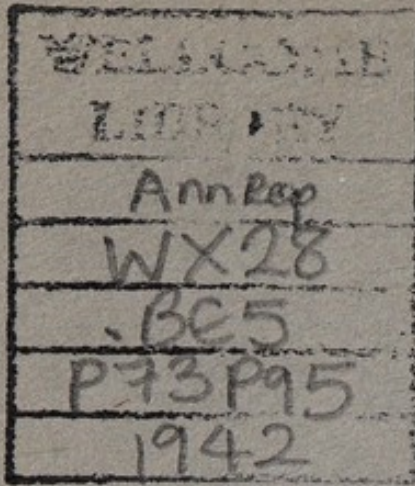 WELLCOME
LIBRARY
Ann Rep
WX28
.BE5
P73P95
1942